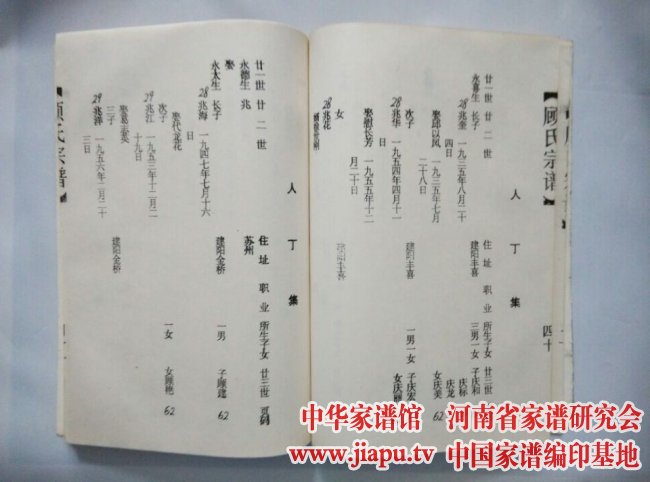 【顾氏宗谱】
四十
人丁集
廿一世 廿二世 住址 职业 所生子女 廿三世
永喜生 长子
28 兆奎 一九三五年八月二十四日 建阳丰喜 三男一女 子庆和
庆标
庆龙
娶邱以凤 一九三五年七月二十八日 女庆美 62
次子
28 兆华 一九五四年四月十一日 建阳丰喜 一男一女 子庆宏
女庆
娶慰长芳 一九五五年十二月二十日
女
28 兆花 建阳丰喜
【顾氏宗谱】
人丁集
廿一世 廿二世 住址 职业 所生子女 廿三世 页码
永德生 兆 苏州
娶
永太生 长子
28 兆海 一九四七年七月十六日 建阳金桥 一男 子顾建 62
娶代龙花
次子
29 兆江 一九五三年十二月二十九日 一女 女顾艳 62
娶葛志英
三子
29 兆洋 一九五六年二月二十三日 建阳金桥
中华家谱馆 河南省家谱研究会
www.jiapu.tv 中国家谱编印基地